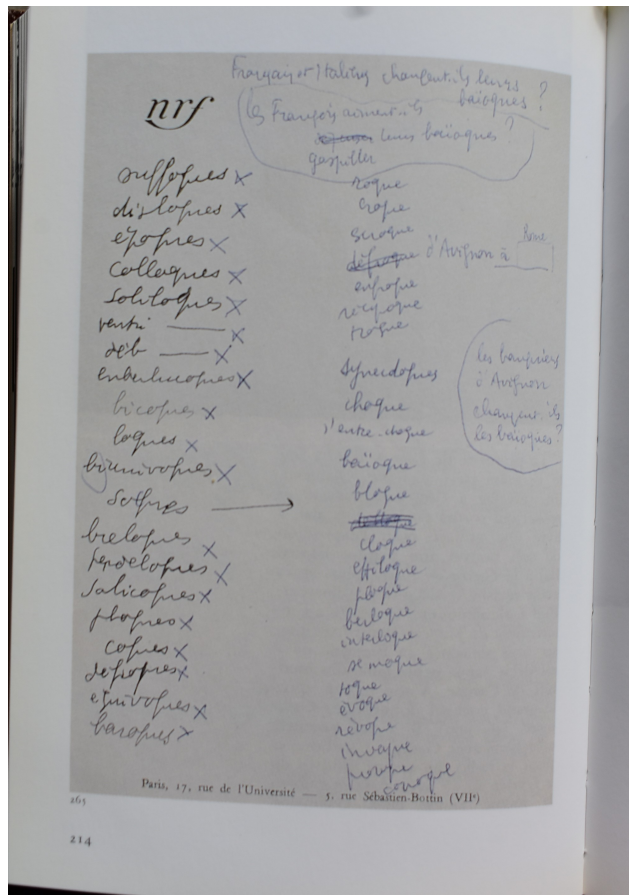 Français et Italiens changent-ils leurs
baïoques ?
nrf
les Français aiment-ils
leurs baïoques ?
gaspiller
suffoques x
disloques x
époques x
Colloques x
Soliloques x
ventri — x
déb — x
emberlucoques x
bicoques x
loques x
biunivoques x
Socques →
breloques x
pendeloques x
Salicoques x
phoques x
coques x
défroques x
équivoques x
baroques x
roque
croque
scroque
défroque d'Avignon à Rome
enfroque
réciproque
troque
Synecdoques
choque
s'entre-choque
baïoque
bloque
cloque
effiloque
ploque
berloque
interloque
se moque
toque
évoque
révoque
invoque
provoque
convoque
les banquiers
d'Avignon
changent-ils
les baïoques ?
Paris, 17, rue de l'Université — 5, rue Sébastien-Bottin (VIIe)
265
214